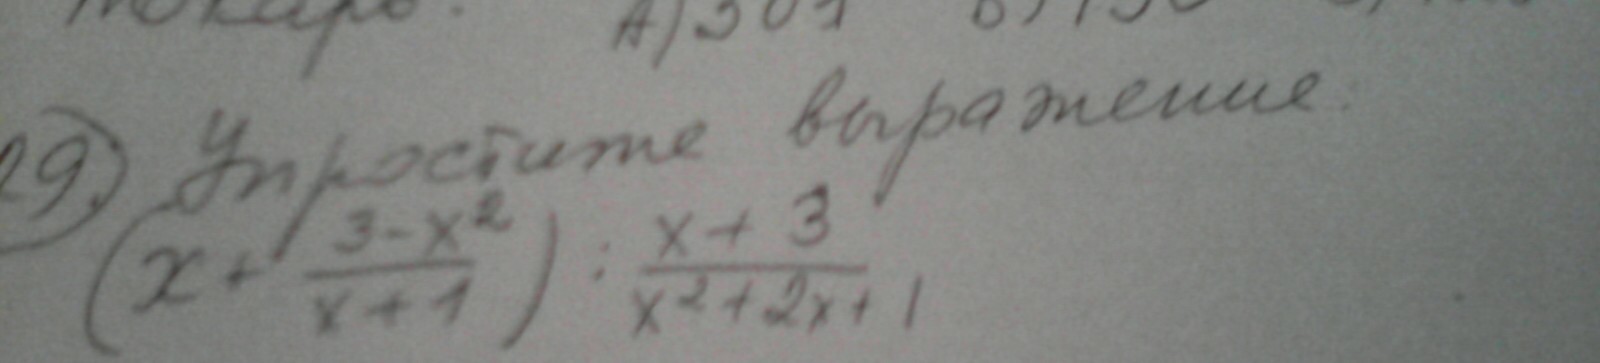 А)301
29) Упростите выражение.
(x + \frac{3-x^2}{x+1}) : \frac{x+3}{x^2+2x+1}